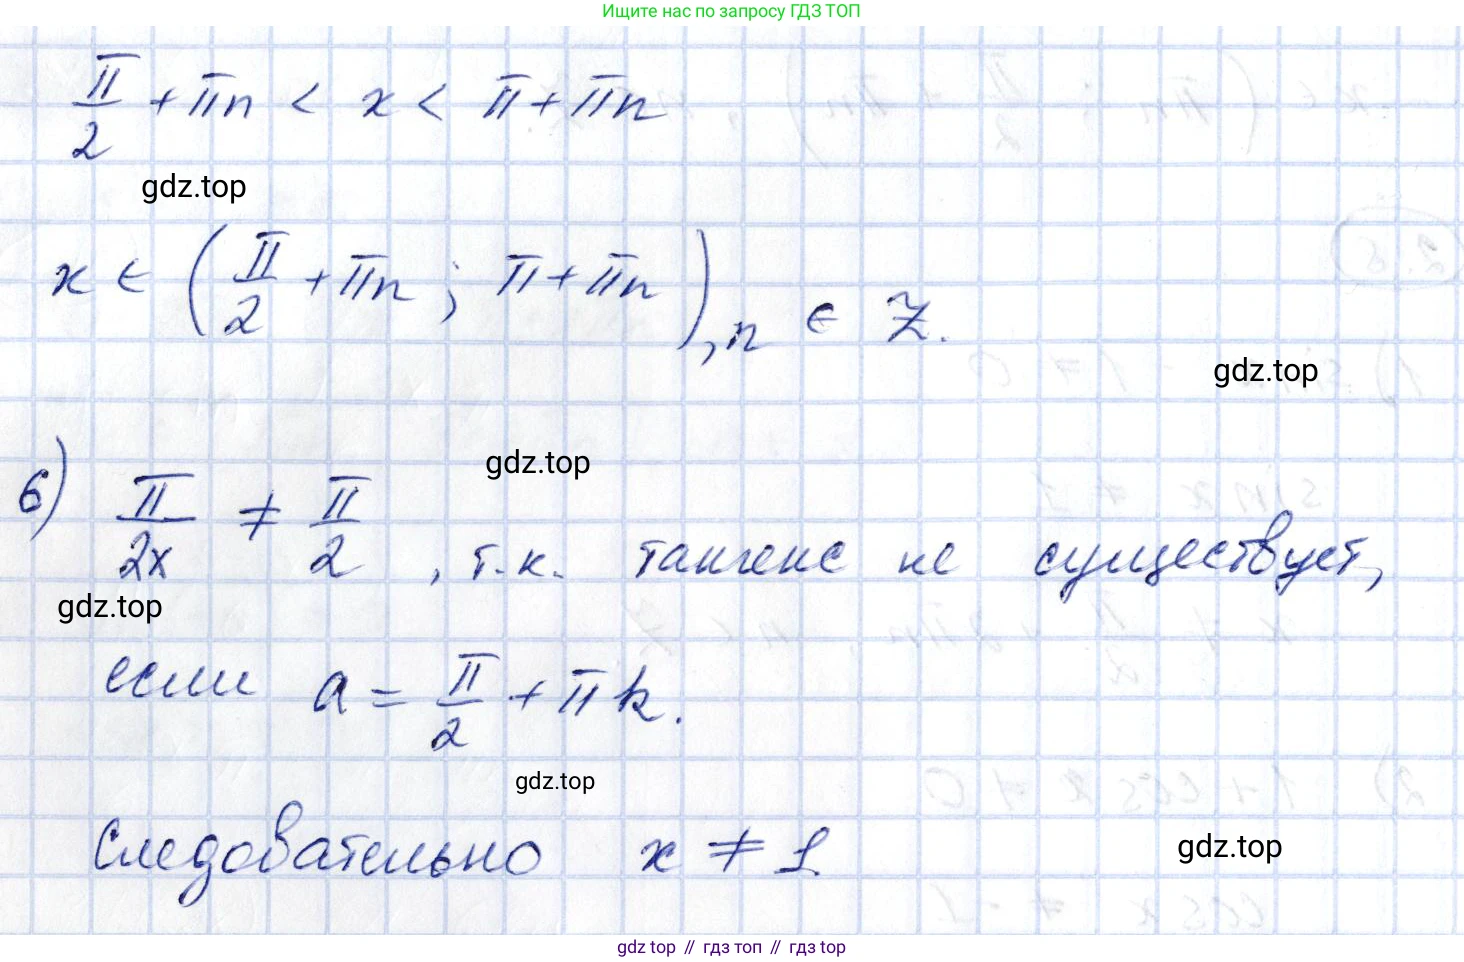 Ищите нас по запросу ГДЗ ТОП
π/2 + πn < x < π + πn
gdz.top
x ∈ (π/2 + πn ; π + πn), n ∈ Z.
gdz.top
gdz.top
6) π/2x ≠ π/2 , т.к. тангенс не существует,
gdz.top
если a = π/2 + πk.
gdz.top
Следовательно x ≠ 1
gdz.top
gdz top // гдз топ // гдз top